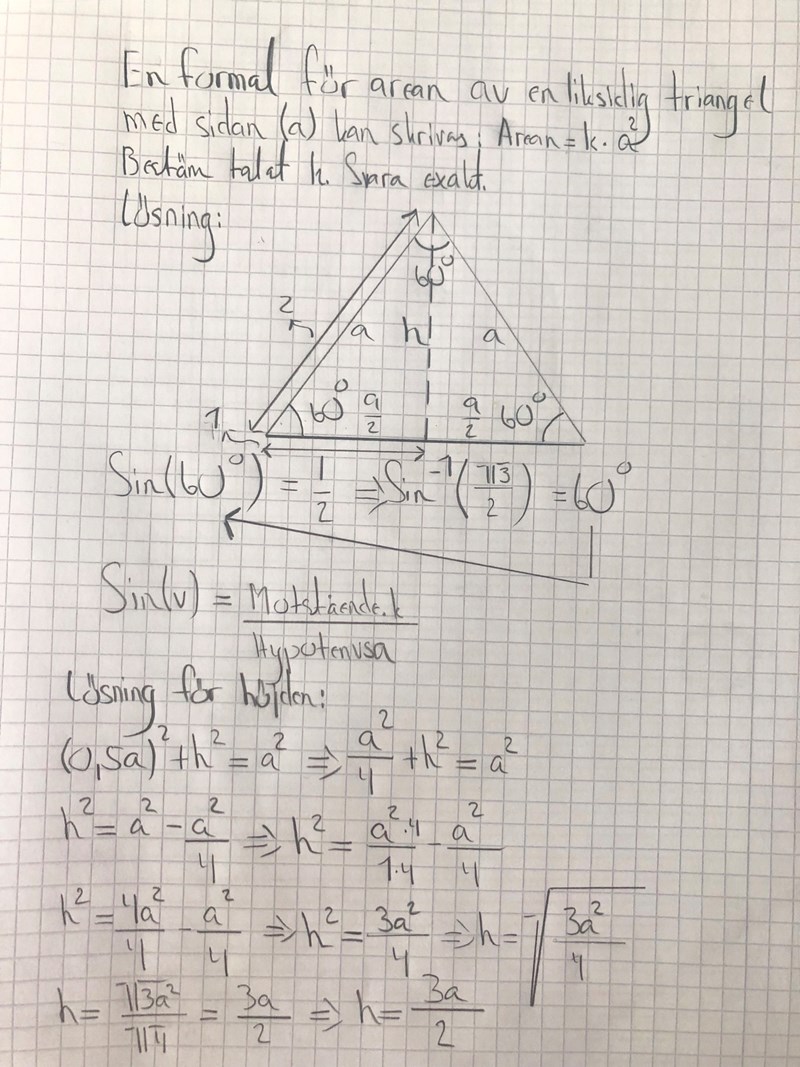 En formal för arean av en liksidig triangel
med sidan (a) kan skrivas; Arean = k · a²
Bestäm talat k. Svara exakt.
Lösning:
60°
2
a h a
1 60° a/2 a/2 60°
Sin(60°) = 1/2 ⇒ Sin⁻¹(√3/2) = 60°
Sin(v) = Motstående.k/Hypotenusa
Lösning för höjden:
(0,5a)² + h² = a² ⇒ a²/4 + h² = a²
h² = a² - a²/4 ⇒ h² = a²·4/1·4 - a²/4
h² = 4a²/4 - a²/4 ⇒ h² = 3a²/4 ⇒ h = √(3a²/4)
h = √3a²/√4 = 3a/2 ⇒ h = 3a/2